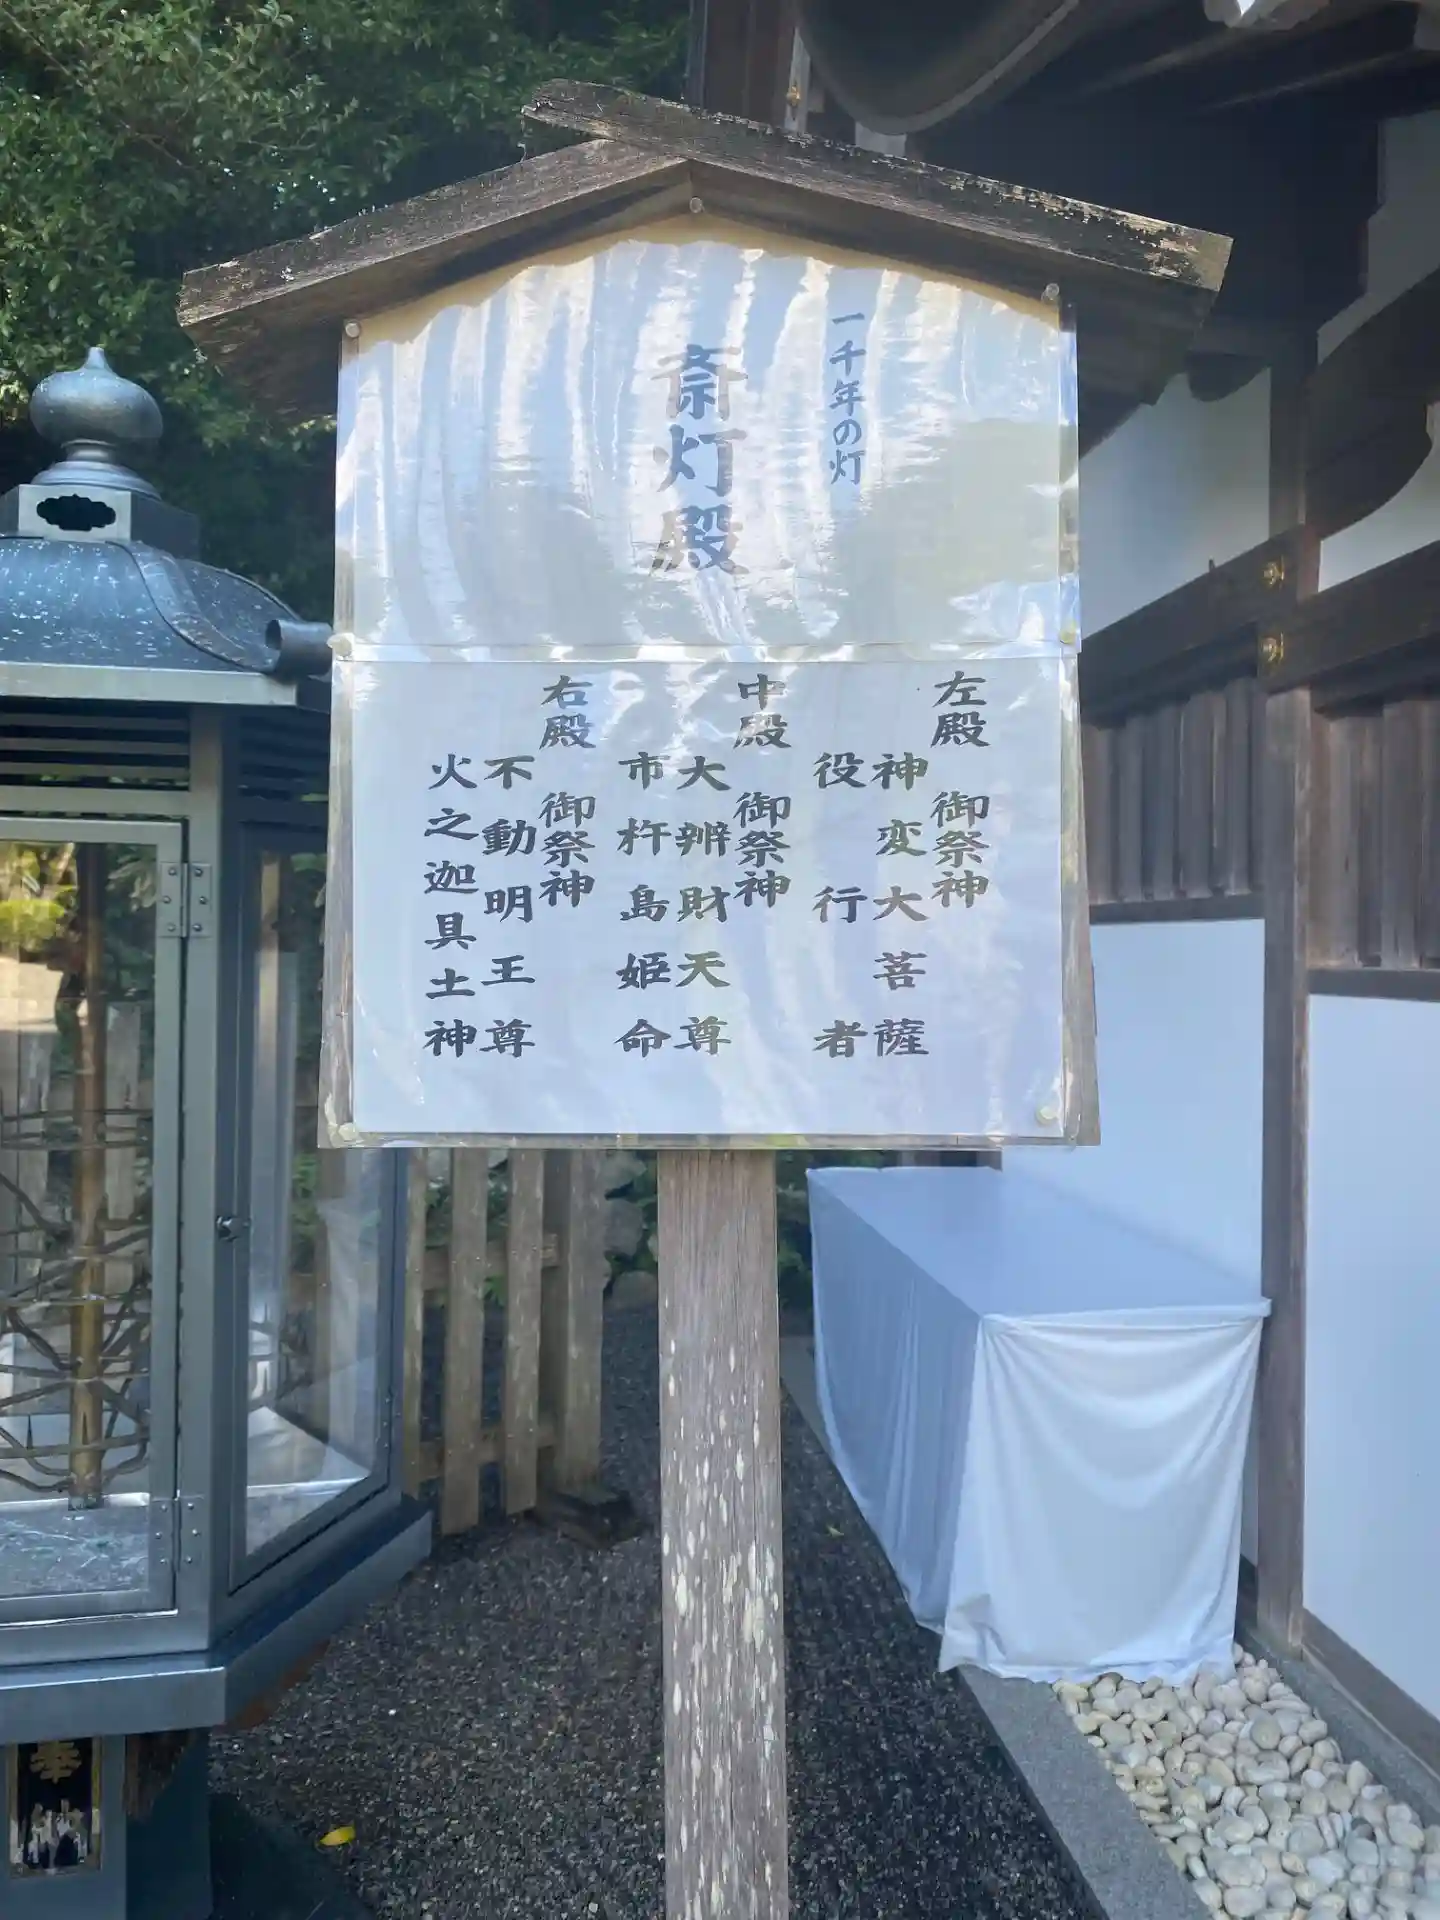 一千年の灯
斎灯殿
左殿 御祭神
神変大菩薩
役行者
中殿 御祭神
大辨財天尊
市杵島姫命
右殿 御祭神
不動明王尊
火之迦具土神
奉納